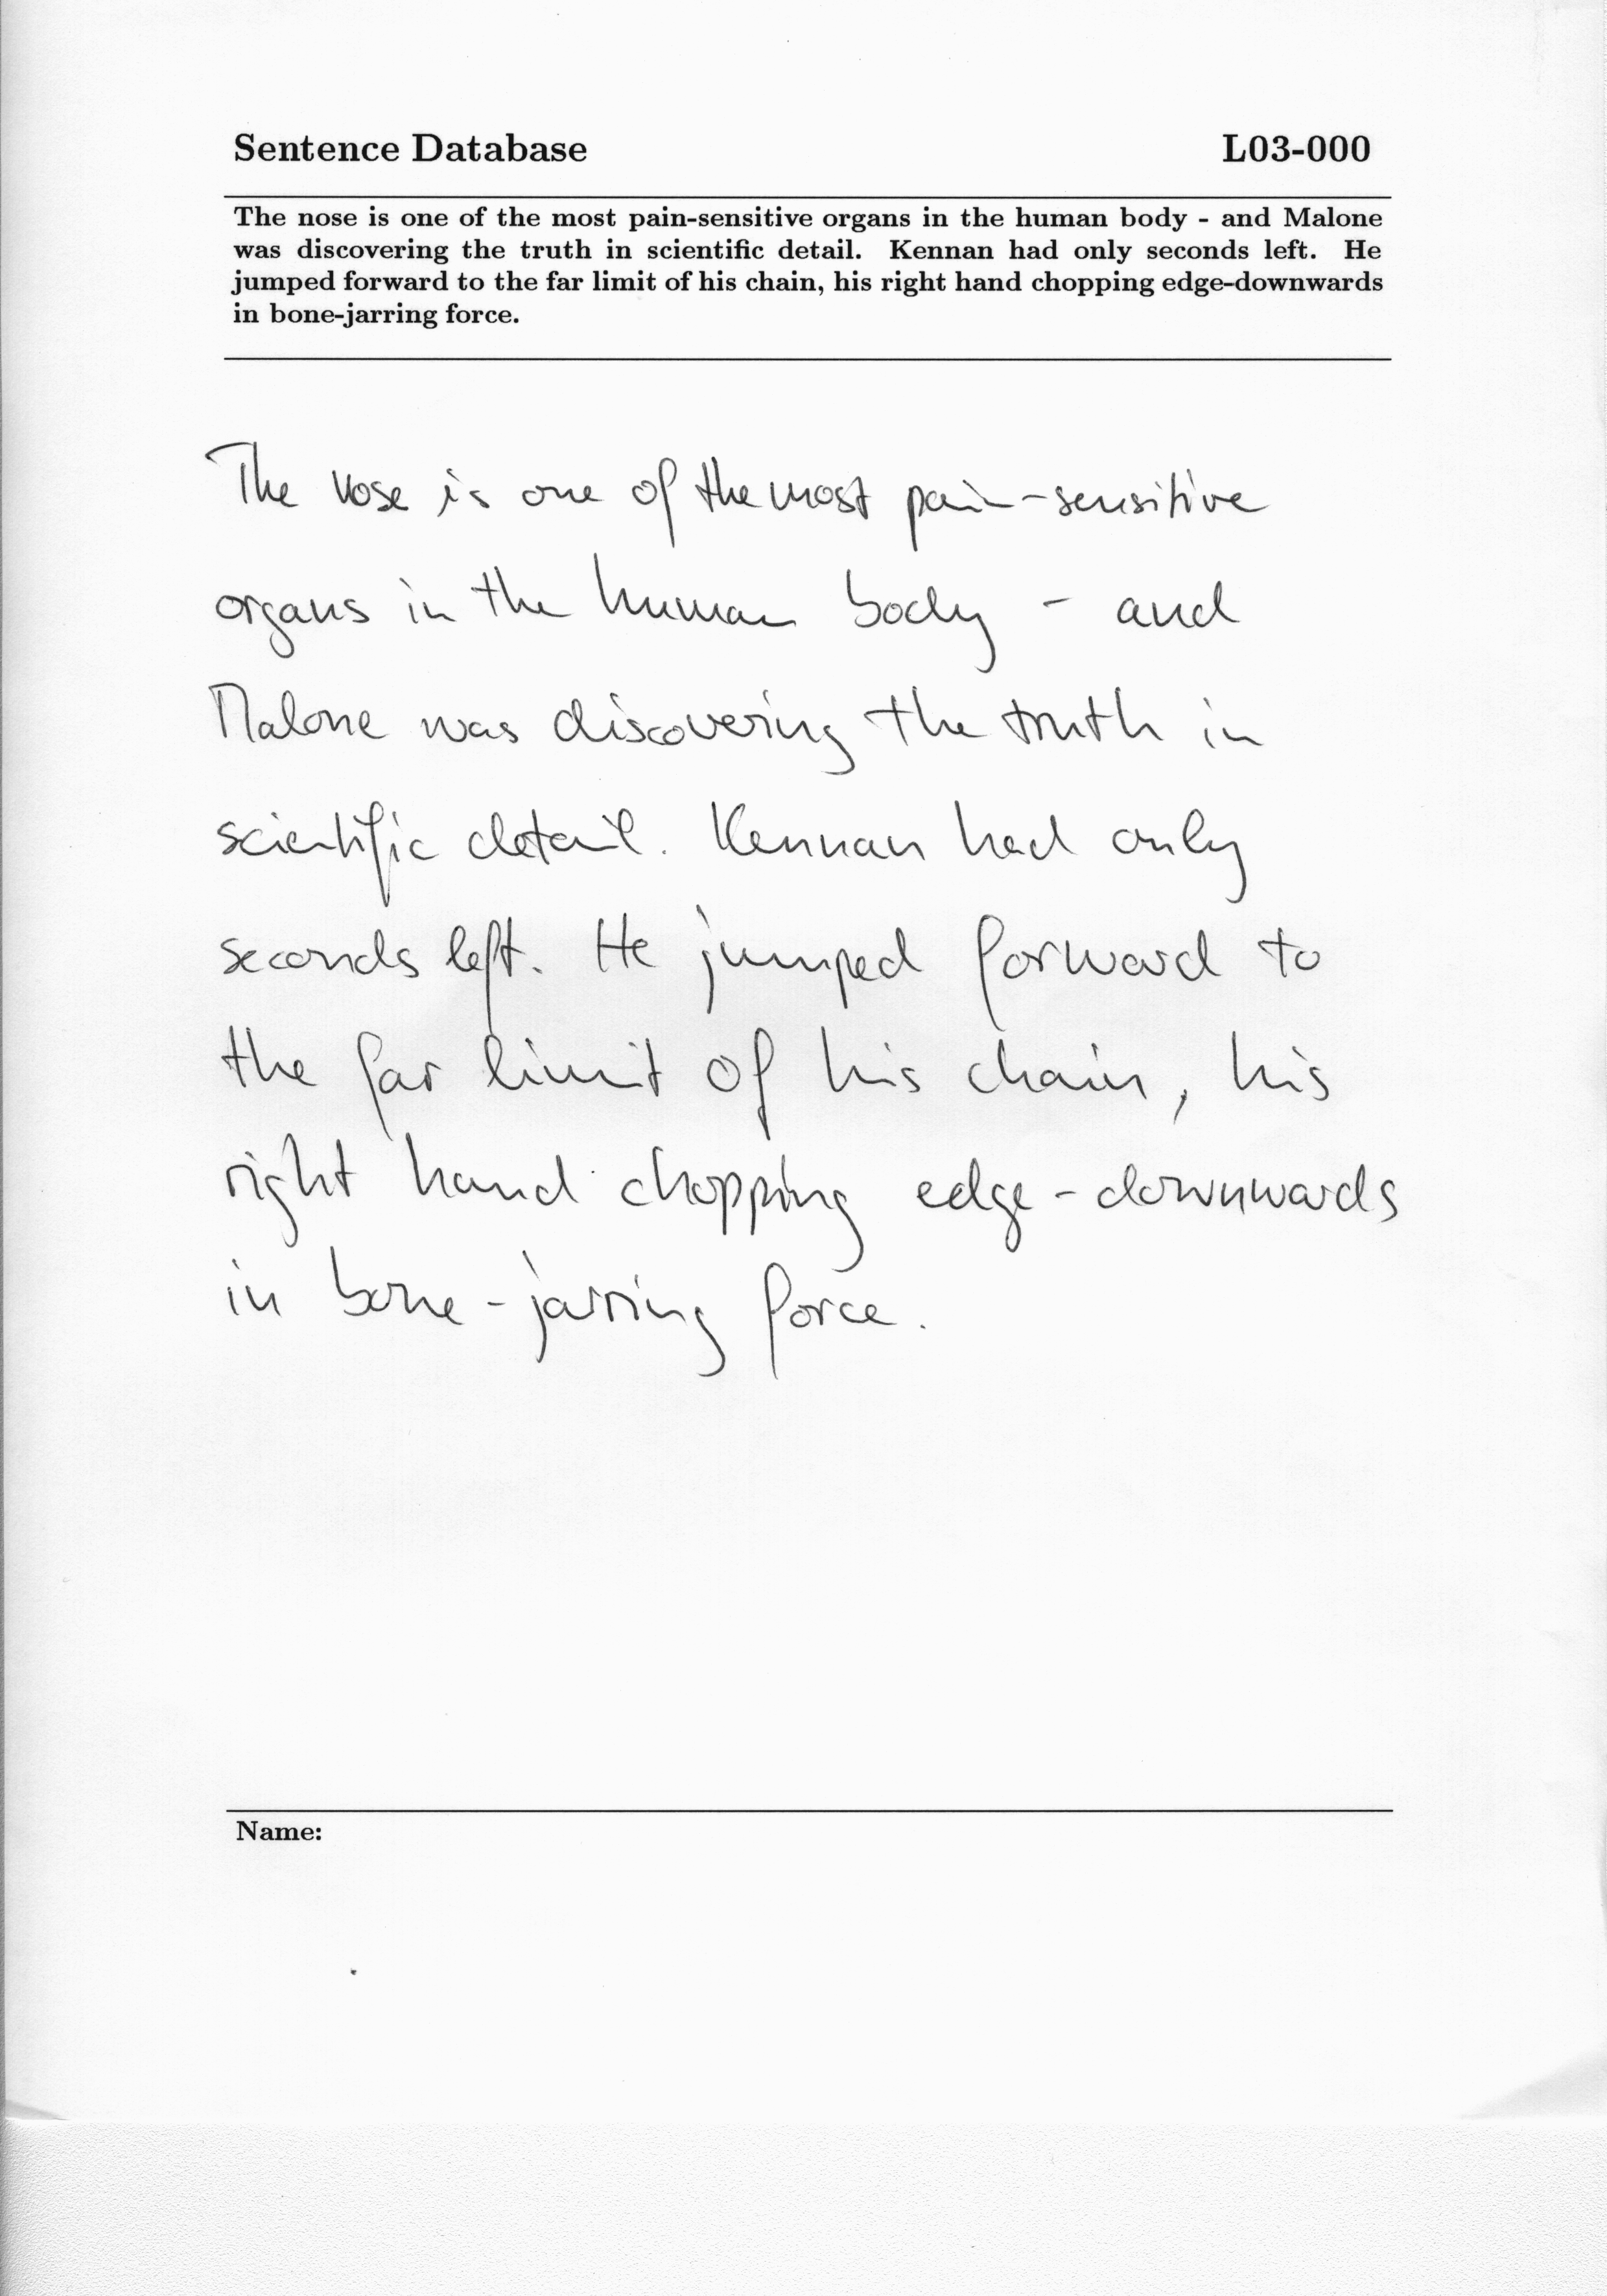 Sentence Database L03-000
The nose is one of the most pain-sensitive organs in the human body - and Malone
was discovering the truth in scientific detail. Kennan had only seconds left. He
jumped forward to the far limit of his chain, his right hand chopping edge-downwards
in bone-jarring force.
The nose is one of the most pain-sensitive
organs in the human body - and
Malone was discovering the truth in
scientific detail. Kennan had only
seconds left. He jumped forward to
the far limit of his chain, his
right hand chopping edge-downwards
in bone-jarring force.
Name: